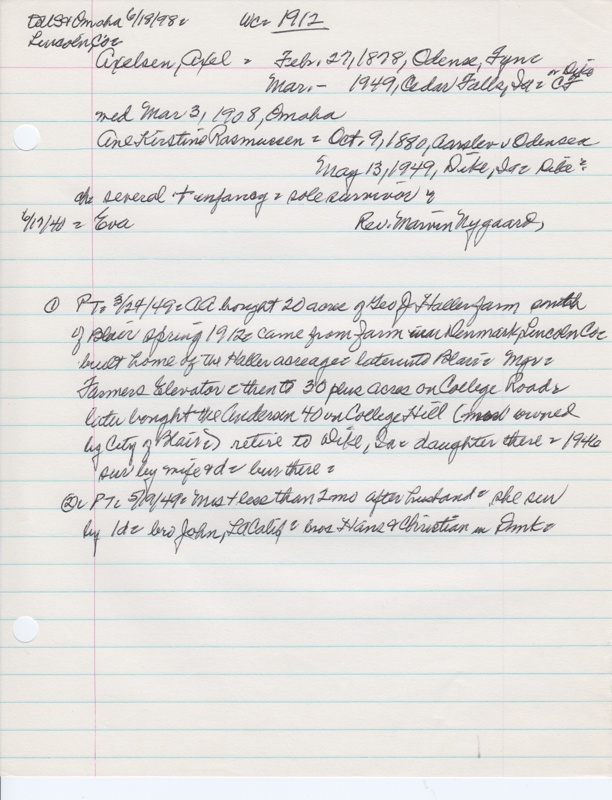 to US & Omaha 6/18/98 = WC = 1912
Lincoln Co =
Axelsen, Axel = Febr. 27, 1878, Odense, Fyn =
Mar. - 1949, Cedar Falls, Ia = or Dike CF
med Mar 3, 1908, Omaha
Ane Kirstine Rasmussen = Oct. 9, 1880, Aarslev v Odense =
May 13, 1949, Dike, Ia = Dike =
ch = several + infancy = sole survivor =
6/17/40 = Eva Rev. Marvin Nygaard,
① PT = 3/24/49 = AA bought 20 acres of Geo J. Haller farm south
of Blair spring 1912 = came from farm near Denmark, Lincoln Co =
built home of the Haller acreage = later into Blair = Mgr =
Farmers Elevator = then to 30 plus acres on College Road =
later bought the Andersen 40 on College Hill ( owned
by City of Blair =) retire to Dike, Ia = daughter there = 1946
sur by wife & d = bur there =
② = PT = 5/19/49 = Mrs + less than 2 mo after husband = she sur
by 1d = bro John, LA Calif = bros Hans & Christian in Dmk =